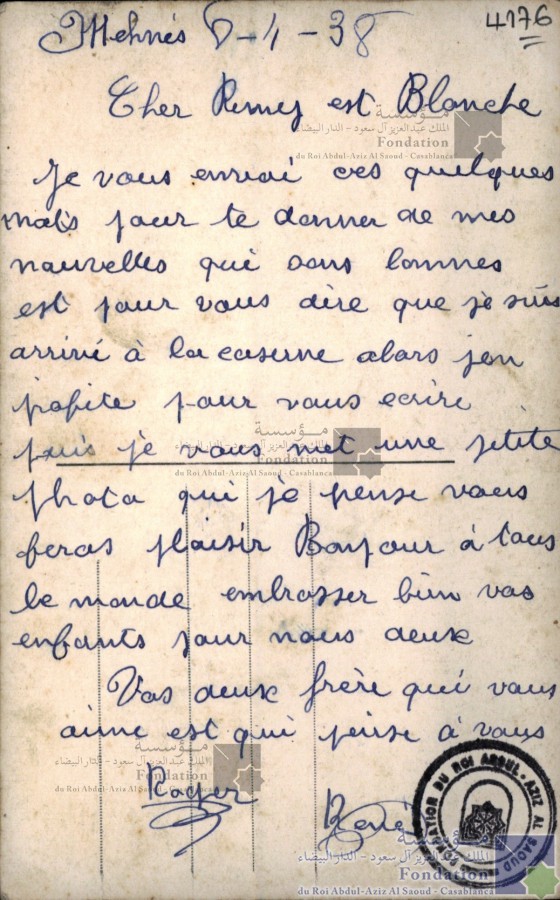 4176
Meknés 8-4-38
Cher Remey est Blanche
Je vous enviai ces quelques
mots pour te donner de mes
nouvelles qui sons bonnes
est pour vous dire que je suis
arrivé à la caserne alors jen
pofite pour vous ecrire
puis je vous met une petite
photo qui je pense vous
feras plaisir Bonjour à tous
le monde embrasser bien vos
enfants pour nous deux
Vos deux frère qui vous
aime est qui pense à vous
Roger René
مؤسسة
الملك عبدالعزيز آل سعود - الدار البيضاء
Fondation
du Roi Abdul-Aziz Al Saoud - Casablanca
مؤسسة
الملك عبدالعزيز آل سعود - الدار البيضاء
Fondation
du Roi Abdul-Aziz Al Saoud - Casablanca
مؤسسة
الملك عبدالعزيز آل سعود - الدار البيضاء
Fondation
du Roi Abdul-Aziz Al Saoud - Casablanca
FONDATION DU ROI ABDUL-AZIZ AL SAOUD
مؤسسة
الملك عبدالعزيز آل سعود - الدار البيضاء
Fondation
du Roi Abdul-Aziz Al Saoud - Casablanca